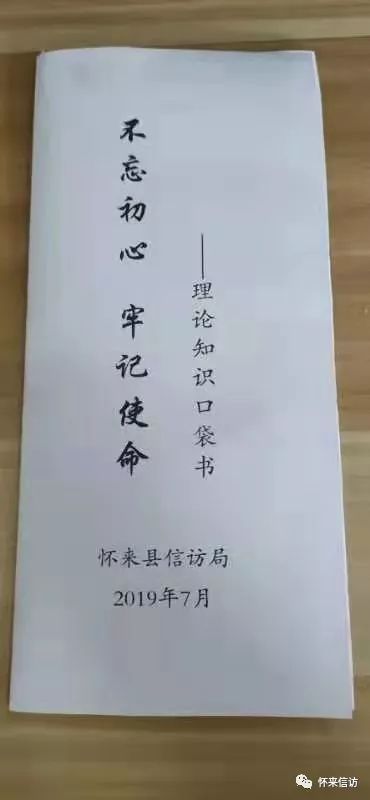 不忘初心 牢记使命
——理论知识口袋书
怀来县信访局
2019年7月
怀来信访